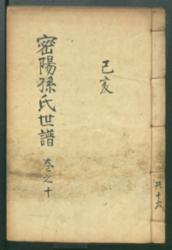 己亥
密陽孫氏世譜 卷之十
共十六